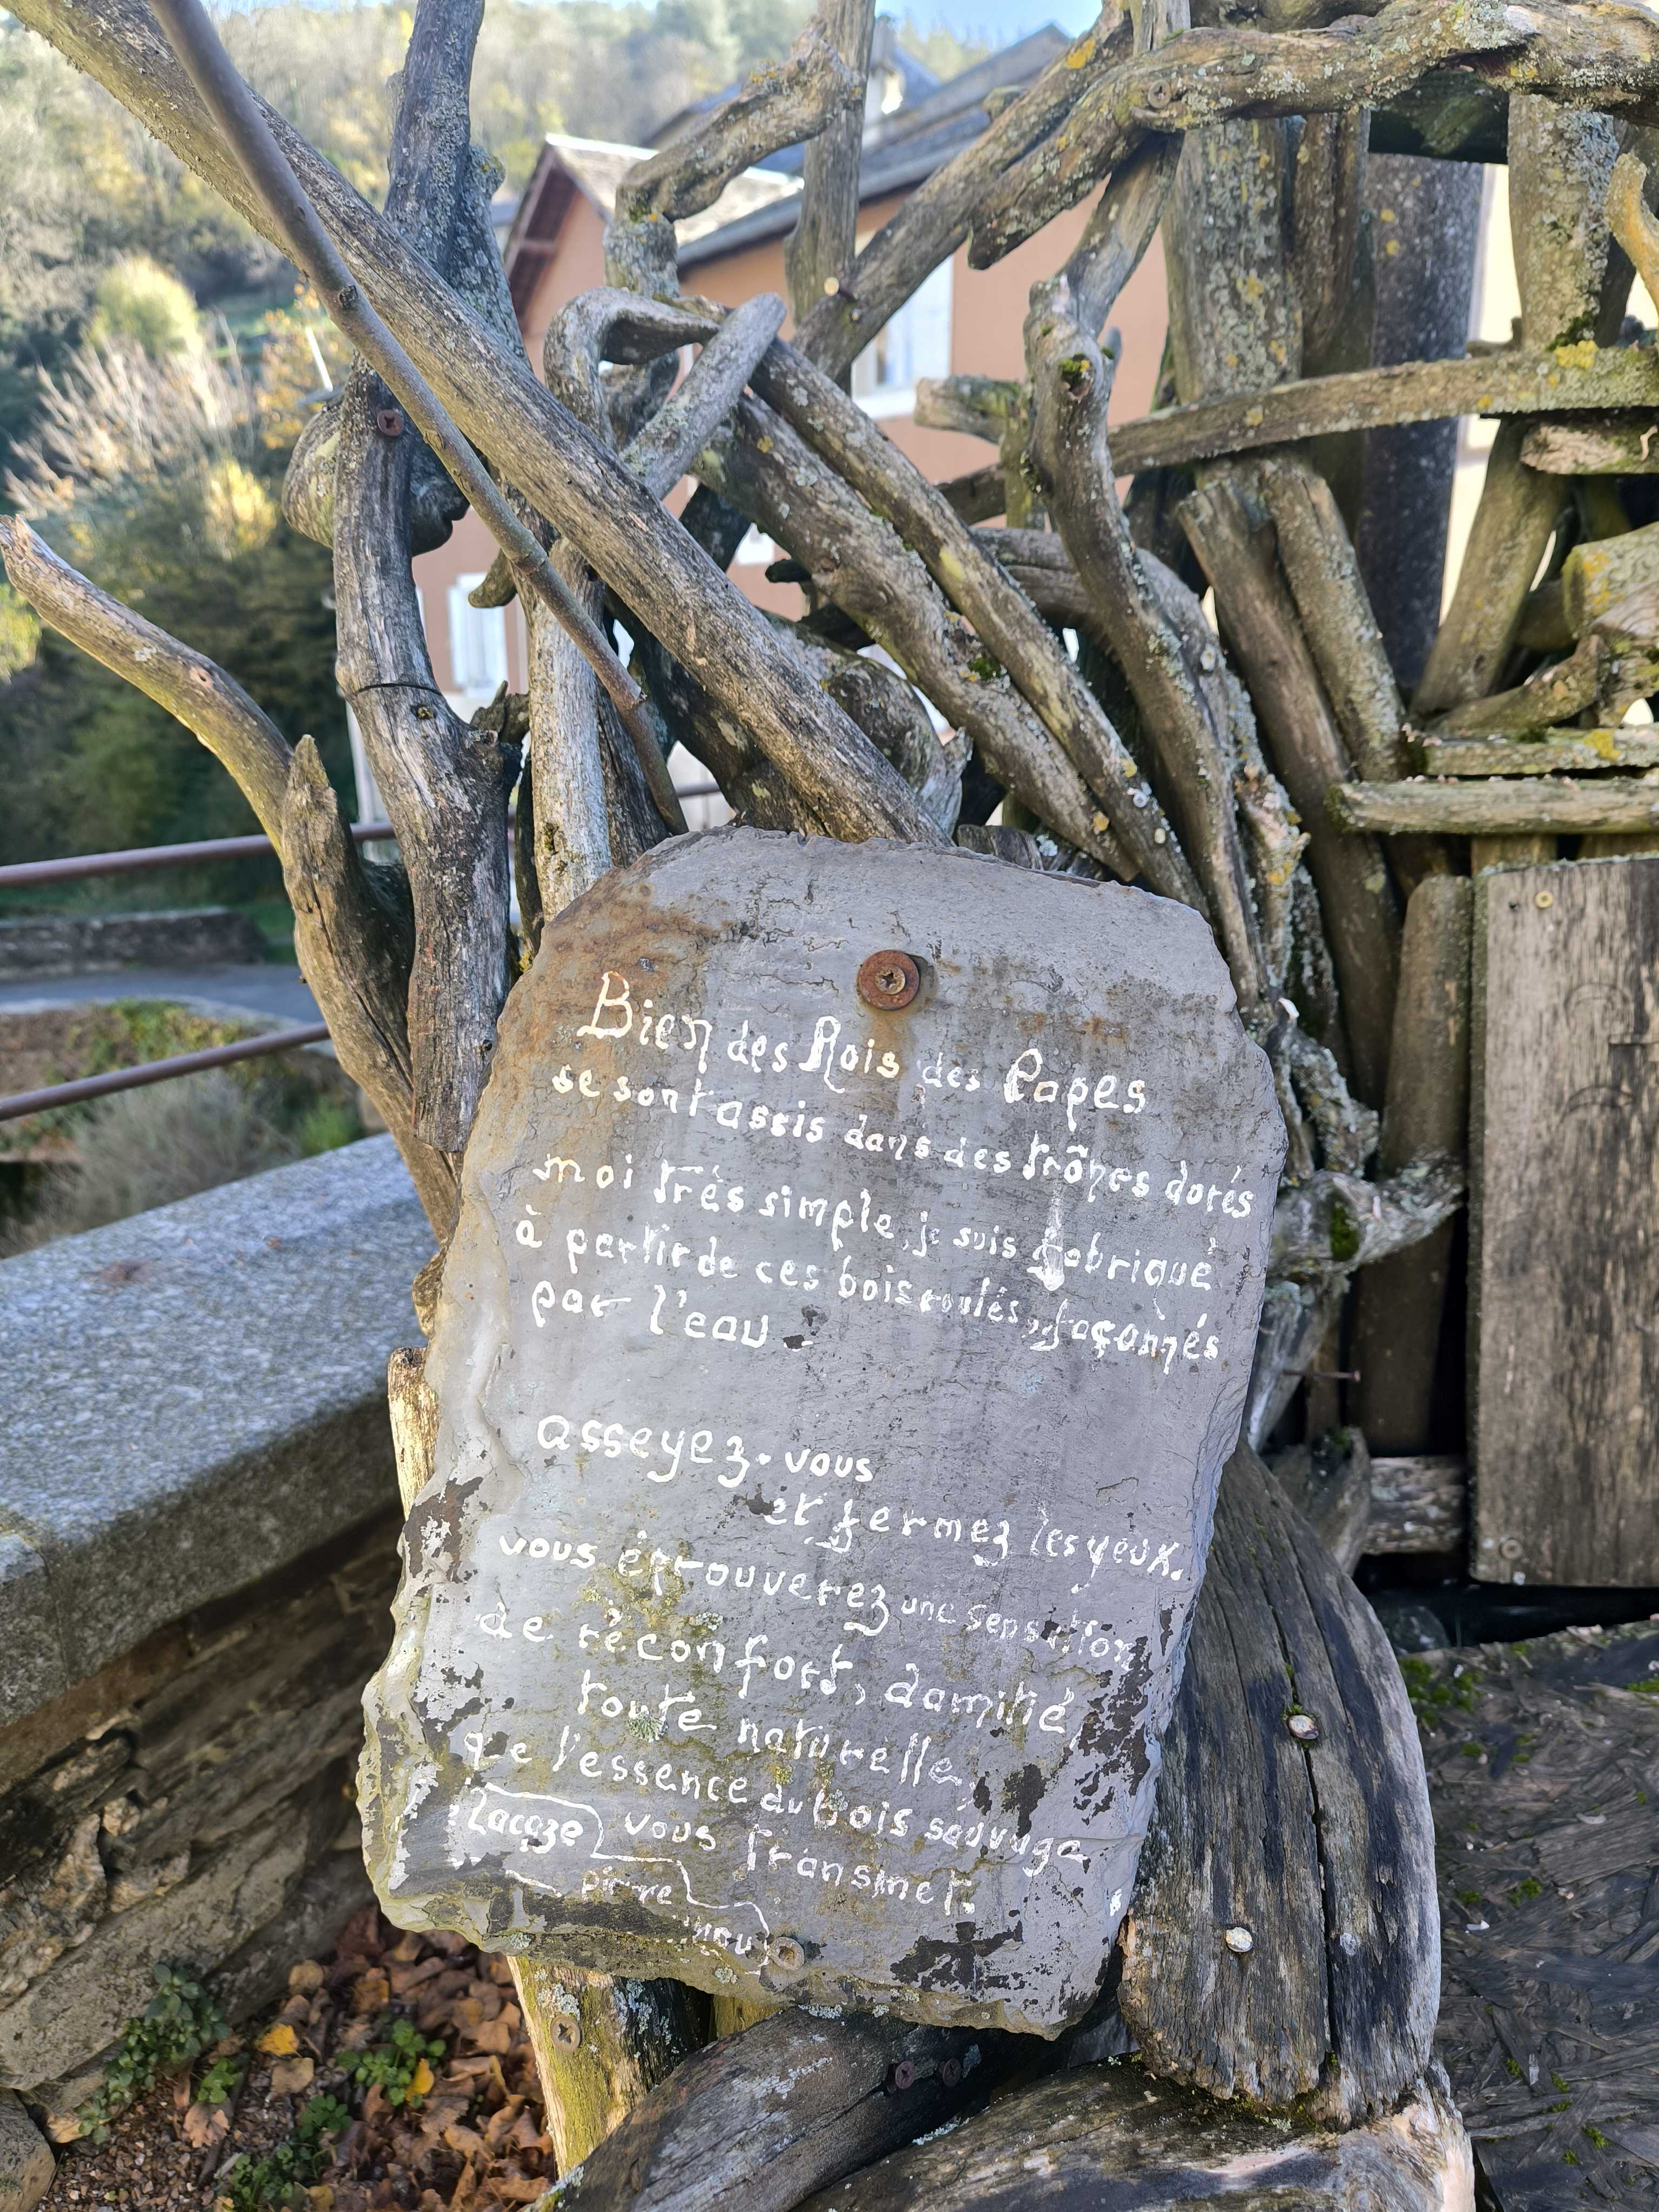 Bien des Rois des Papes
se sont assis dans des trônes dorés
moi très simple, je suis fabriqué
à partir de ces bois roulés, façonnés
par l'eau.
asseyez-vous
et fermez les yeux.
vous éprouverez une sensation
de réconfort, d'amitié
toute naturelle,
que l'essence du bois sauvage
vous transmet.
Lacaze
pirre